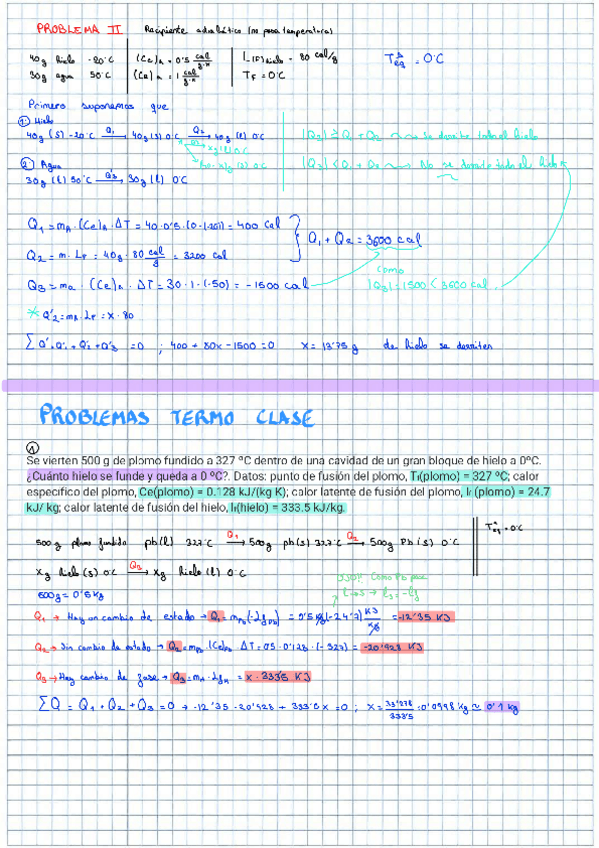 PROBLEMA II Recipiente adiabático (no pasa temperatura)
40g hielo -20°C (Ce)h = 0'5 cal/g·K (LF)hielo = 80 cal/g Teq = 0°C
30g agua 50°C (Ce)a = 1 cal/g·K TF = 0°C
Primero suponemos que
1) Hielo
40g (s) -20°C Q1→ 40g (s) 0°C Q2→ 40g (l) 0°C
|Q3| ≥ Q1 + Q2 → Se derrite todo el hielo
* Q2' xg (l) 0°C
(40-x)g (s) 0°C
|Q3| < Q1 + Q2 → No se derrite todo el hielo
2) Agua
30g (l) 50°C Q3→ 30g (l) 0°C
Q1 = mh · (Ce)h · ΔT = 40·0'5·(0-(-20)) = 400 cal
Q1 + Q2 = 3600 cal
Q2 = m · LF = 40g · 80 cal/g = 3200 cal
como
Q3 = ma · (Ce)a · ΔT = 30·1·(-50) = -1500 cal
|Q3| = 1500 < 3600 cal
* Q'2 = mh · LF = x · 80
∑ Q' = Q'1 + Q'2 + Q'3 = 0 ; 400 + 80x - 1500 = 0 x = 13'75 g de hielo se derriten
PROBLEMAS TERMO CLASE
1
Se vierten 500 g de plomo fundido a 327 ºC dentro de una cavidad de un gran bloque de hielo a 0ºC.
¿Cuánto hielo se funde y queda a 0 ºC?. Datos: punto de fusión del plomo, Tf(plomo) = 327 ºC; calor
específico del plomo, Ce(plomo) = 0.128 kJ/(kg K); calor latente de fusión del plomo, lf (plomo) = 24.7
kJ/ kg; calor latente de fusión del hielo, lf(hielo) = 333.5 kJ/kg.
500g plomo fundido pb(l) 327°C Q1→ 500g pb(s) 327°C Q2→ 500g Pb(s) 0°C
Teq = 0°C
xg hielo (s) 0°C Q3→ xg hielo (l) 0°C
500g = 0'5 kg
Como Pb pasa
l → s → ls = -lf
Q1 → Hay un cambio de estado → Q1 = mPb(-LfPb) = 0'5 kg(-24'7) KJ/kg = -12'35 KJ
Q2 → Sin cambio de estado → Q2 = mPb · (Ce)Pb · ΔT = 0'5 · 0'128 · (-327) = -20'928 KJ
Q3 → Hay cambio de fase → Q3 = mh · Lfh = x · 333'5 KJ
∑ Q = Q1 + Q2 + Q3 = 0 → -12'35 - 20'928 + 333'5 x = 0 ; x = 33'278/333'5 = 0'0998 kg ≈ 0'1 kg